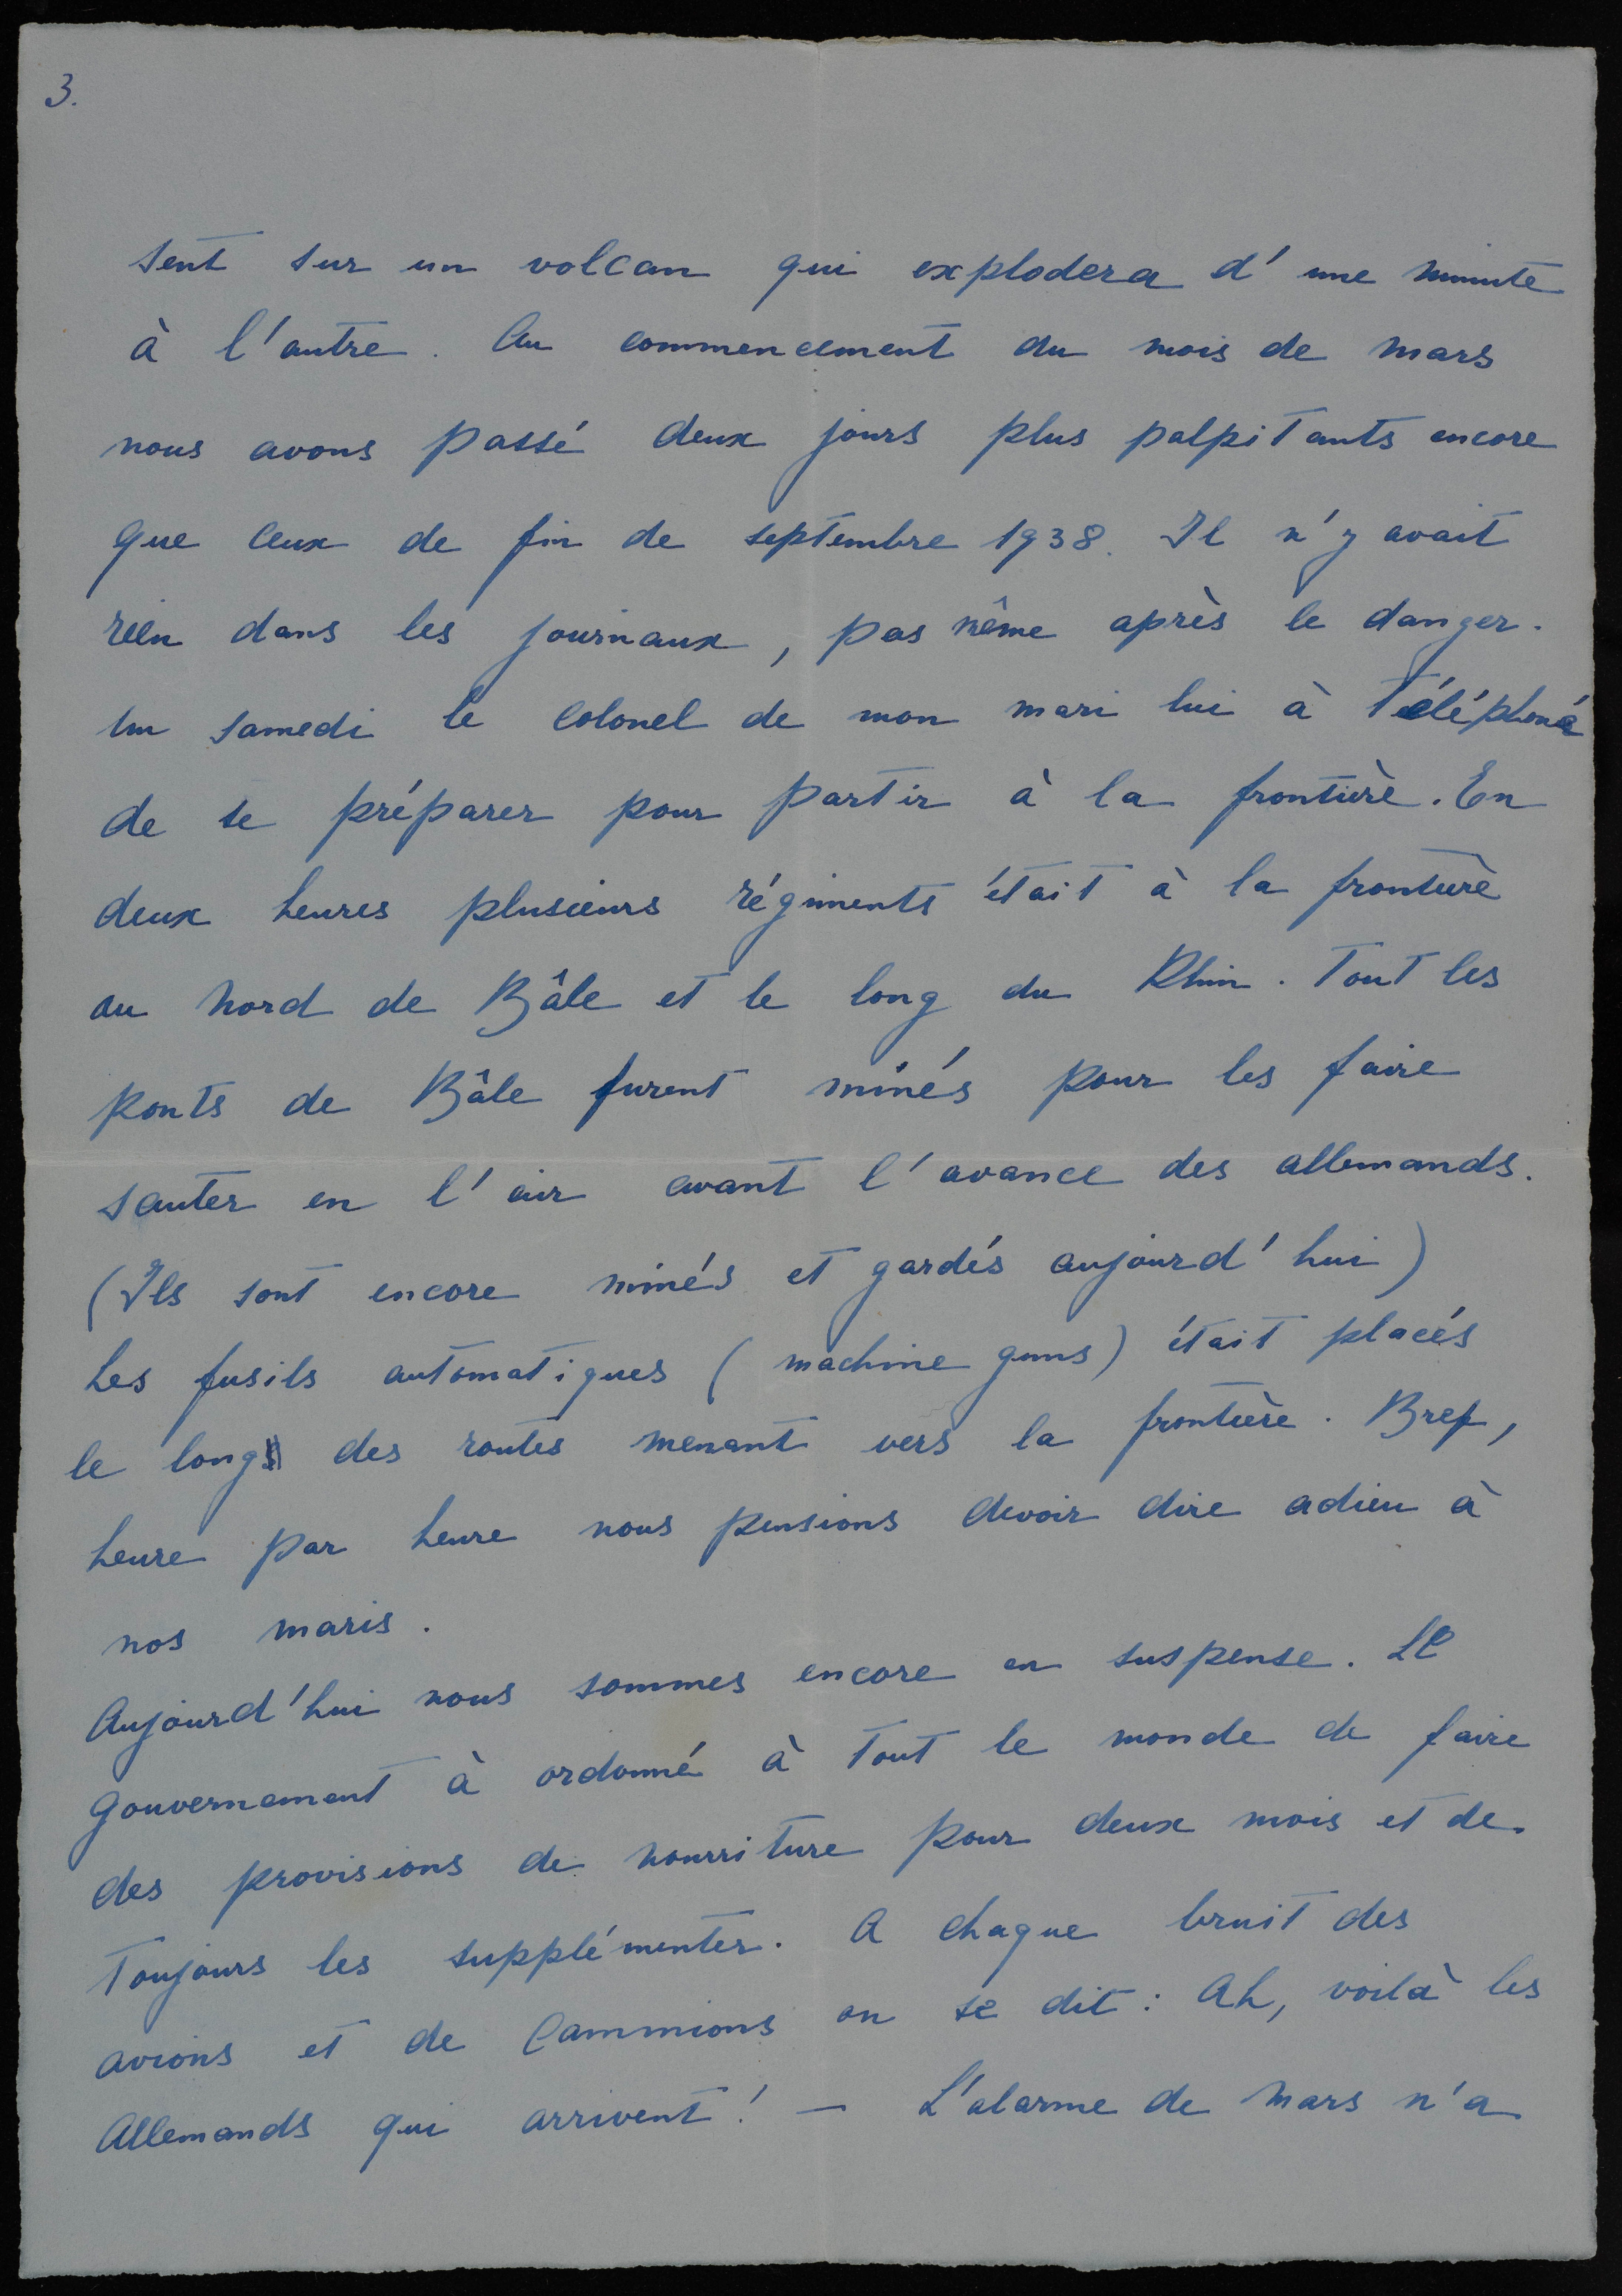 3.
sent sur un volcan qui explodera d'une minute
à l'autre. Au commencement du mois de mars
nous avons passé deux jours plus palpitants encore
que ceux de fin de septembre 1938. Il n'y avait
rien dans les journaux, pas même après le danger.
Un samedi le colonel de mon mari lui à téléphoné
de se préparer pour partir à la frontière. En
deux heures plusieurs régiments était à la frontière
au Nord de Bâle et le long du Rhin. Tout les
ponts de Bâle furent minés pour les faire
sauter en l'air avant l'avance des allemands.
(Ils sont encore minés et gardés aujourd'hui)
Les fusils automatiques (machine guns) était placés
le long des routes menant vers la frontière. Bref,
heure par heure nous pensions devoir dire adieu à
nos maris.
Aujourd'hui nous sommes encore en suspense. Le
Gouvernement à ordonné à tout le monde de faire
des provisions de nourriture pour deux mois et de
toujours les supplémenter. A chaque bruit des
avions et de cammions on se dit: Ah, voilà les
Allemands qui arrivent! — L'alarme de Mars n'a